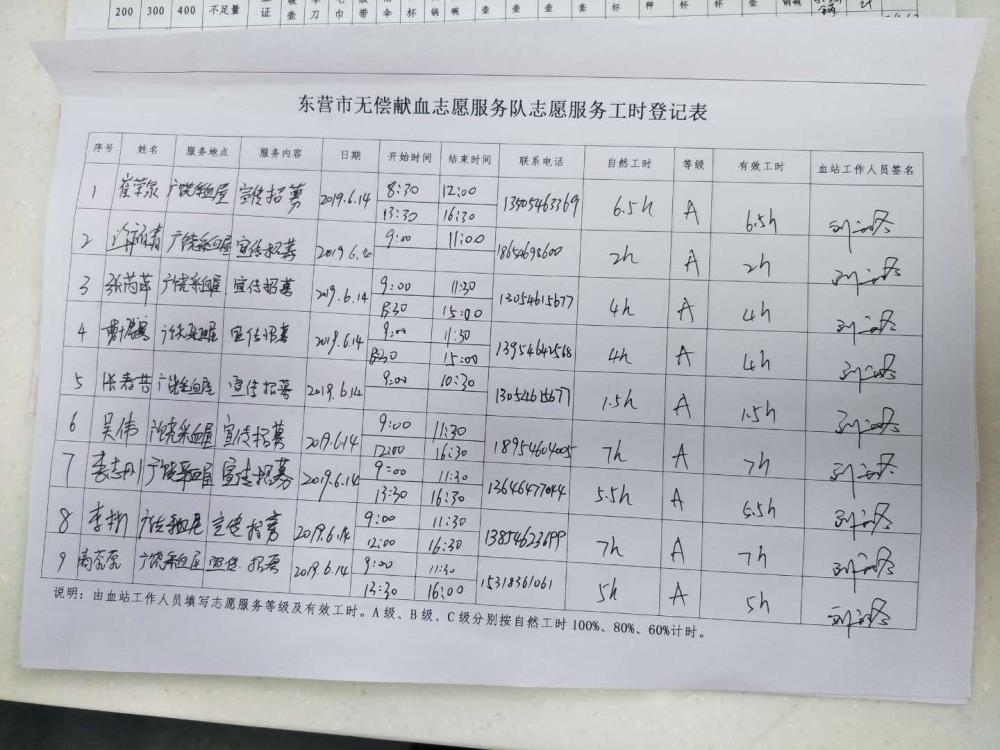 200 300 400 不足量
东营市无偿献血志愿服务队志愿服务工时登记表
序号 姓名 服务地点 服务内容 日期 开始时间 结束时间 联系电话 自然工时 等级 有效工时 血站工作人员签名
1 崔荣泉 广饶采血屋 宣传招募 2019.6.14 8:30 12:00 13505463369 6.5h A 6.5h
13:30 16:30
2 广饶采血屋 宣传招募 2019.6.14 9:00 11:00 2h A 2h
3 张芮萍 广饶采血屋 宣传招募 2019.6.14 9:00 11:30 13054615677 4h A 4h
13:30 15:00
4 广饶采血屋 宣传招募 2019.6.14 9:00 11:30 13954642568 4h A 4h
13:30 15:00
5 张春苗 广饶采血屋 宣传招募 2019.6.14 9:00 10:30 13054615677 1.5h A 1.5h
6 吴伟 广饶采血屋 宣传招募 2019.6.14 9:00 11:30 18954604005 7h A 7h
12:00 16:30
7 李志刚 广饶采血屋 宣传招募 2019.6.14 9:00 11:30 13646477044 5.5h A 5.5h
13:30 16:30
8 李彬 广饶采血屋 宣传招募 2019.6.14 9:00 11:30 13854623699 7h A 7h
12:00 16:30
9 广饶采血屋 宣传招募 2019.6.14 9:00 11:30 15318361061 5h A 5h
13:30 16:00
说明：由血站工作人员填写志愿服务等级及有效工时。A级、B级、C级分别按自然工时100%、80%、60%计时。